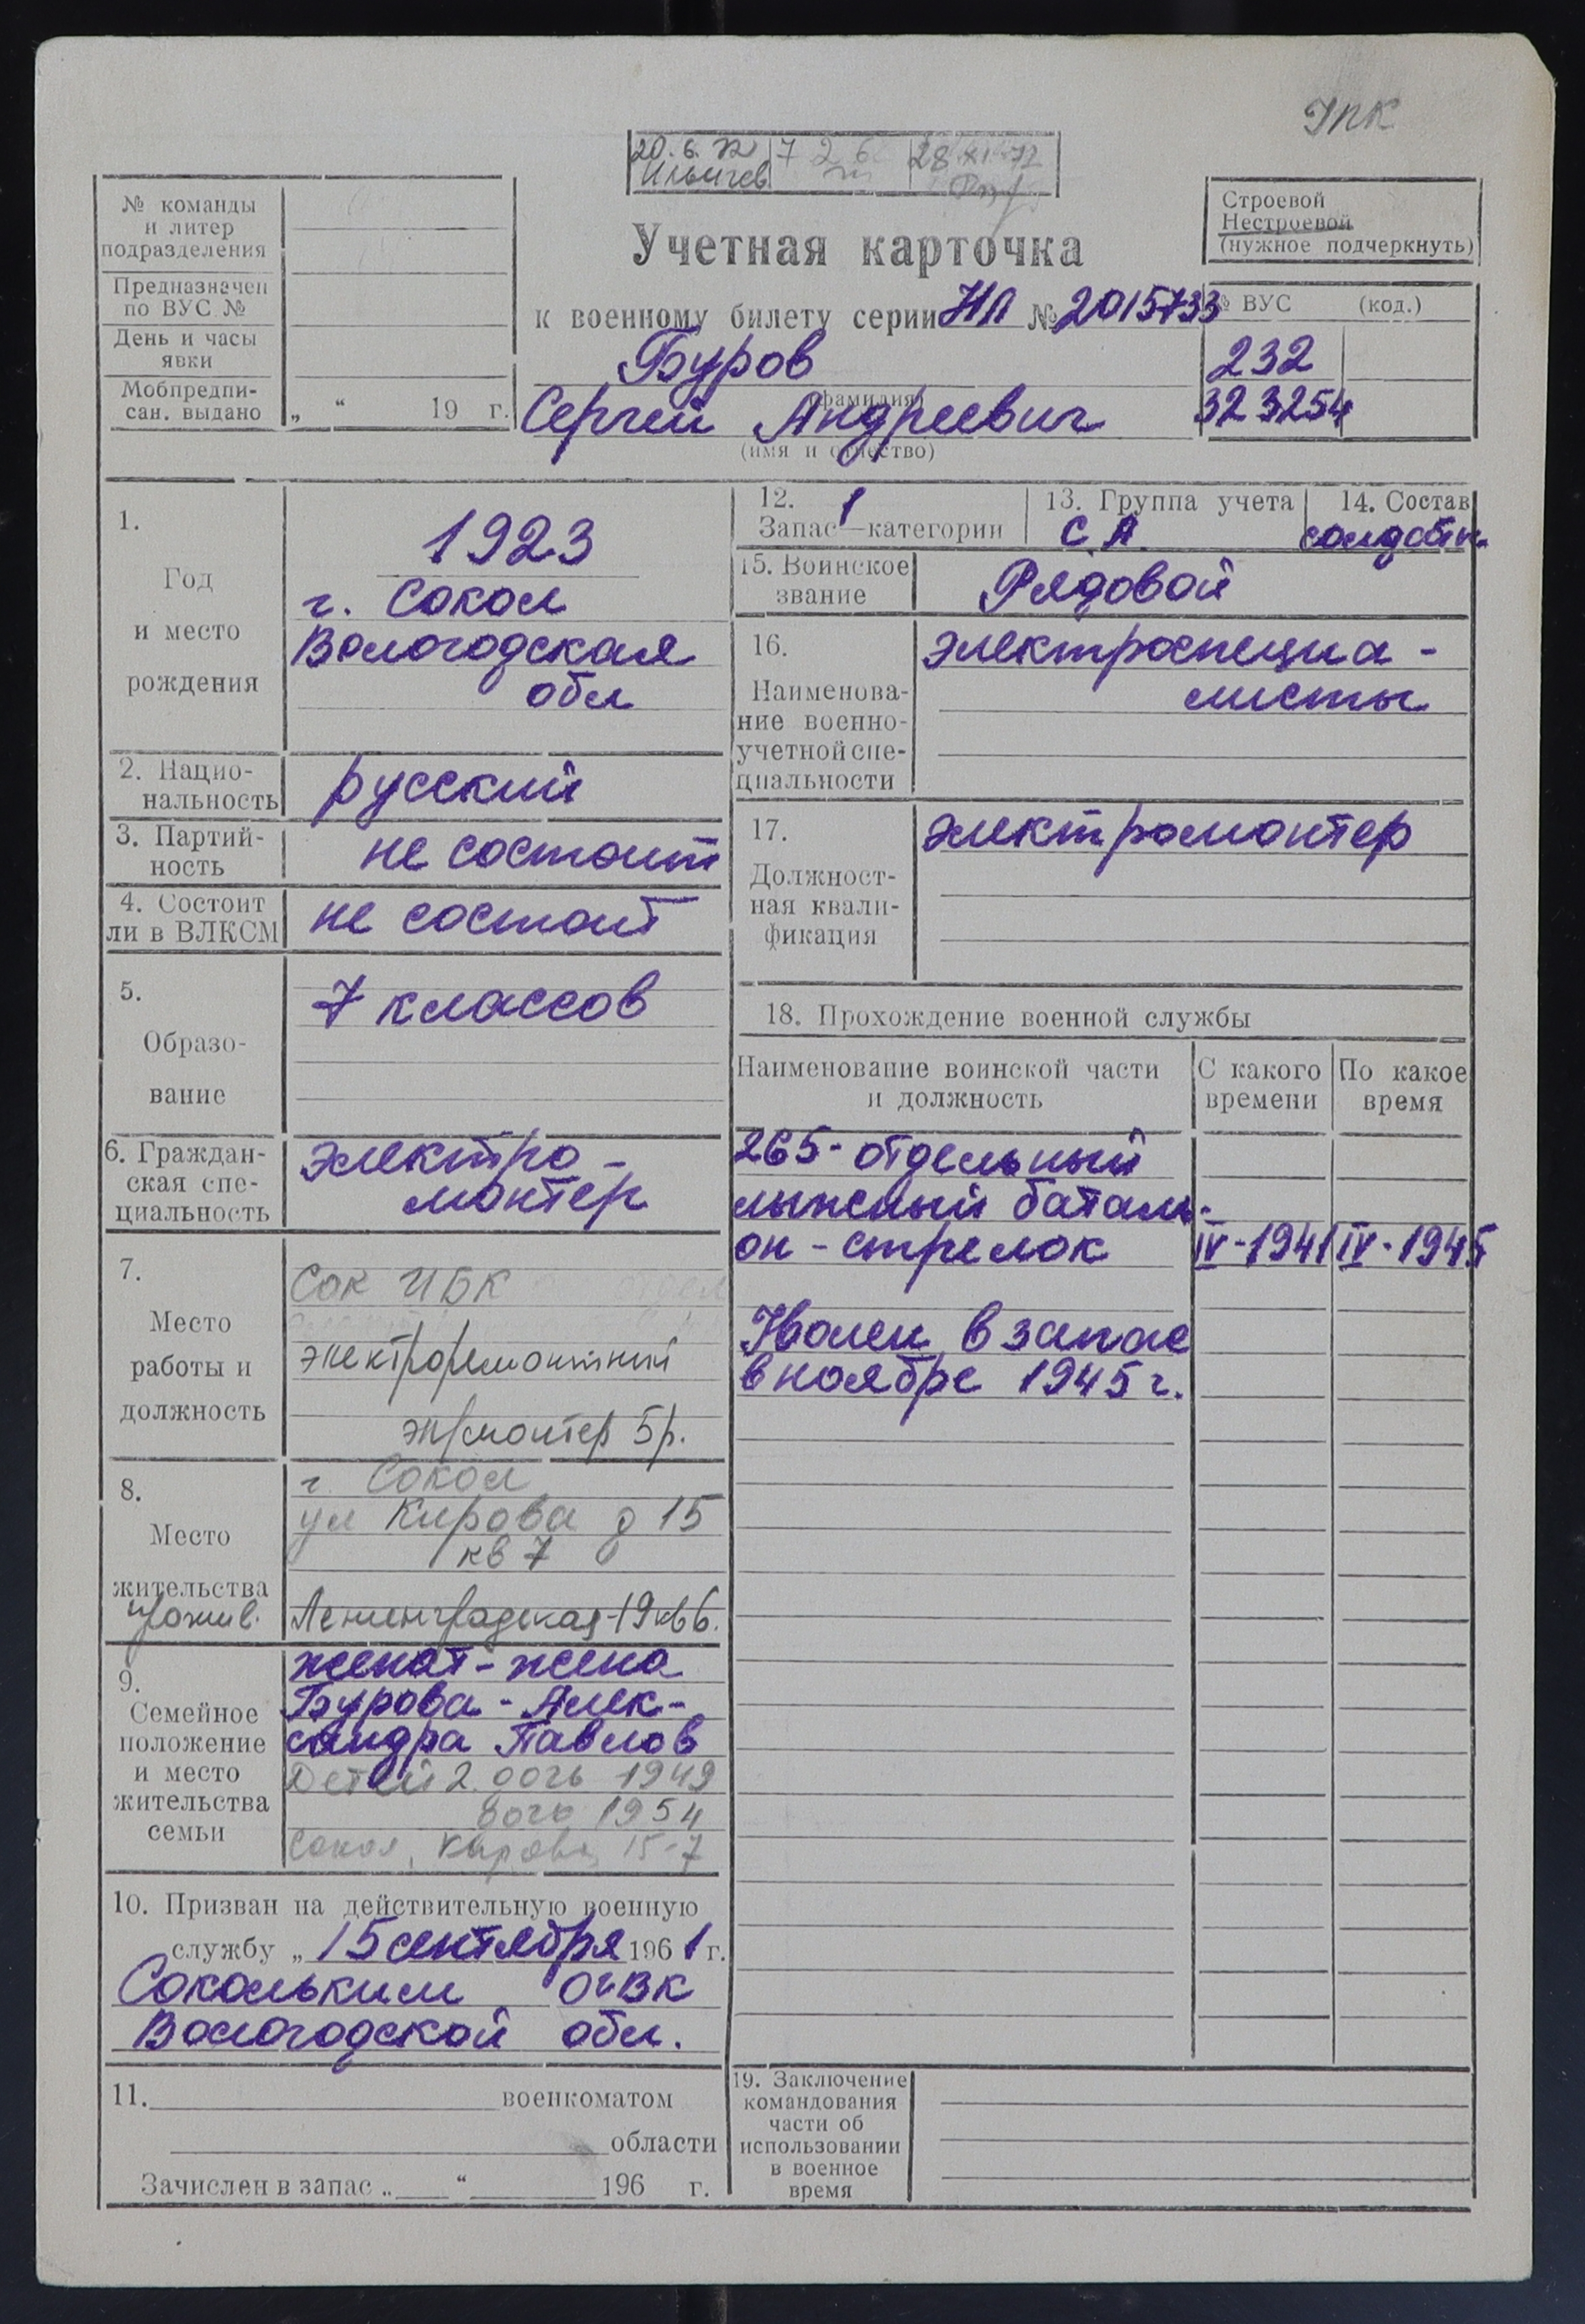 УПК
20.6.72 | 7 2 6 | 28 XI-72
Ильичев
№ команды
и литер
подразделения
Предназначен
по ВУС №
День и часы
явки
Мобпредпи-
сан. выдано „ “ 19 г.
Учетная карточка
к военному билету серии НЛ № 2015733
Буров
(фамилия)
Сергей Андреевич
(имя и отчество)
Строевой
Нестроевой
(нужное подчеркнуть)
№ ВУС (код.)
232
323254
1.
Год
и место
рождения
1923
г. Сокол
Вологодская
обл
2. Нацио-
нальность
русский
3. Партий-
ность
не состоит
4. Состоит
ли в ВЛКСМ
не состоит
5.
Образо-
вание
7 классов
6. Граждан-
ская спе-
циальность
электро-
монтер
7.
Место
работы и
должность
Сок ЦБК отдел
электроремонтный
эл/монтер 5р.
8.
Место
жительства
прожив.
г. Сокол
ул Кирова д 15
кв 7
Ленинградская-19 кв 6.
9.
Семейное
положение
и место
жительства
семьи
женат-жена
Бурова-Алек-
сандра Павлов
Детей 2. дочь 1949
дочь 1954
Сокол, Кирова 15-7
10. Призван на действительную военную
службу „ 15 сентября 1961 г.
Сокольким ОГВК
Вологодской обл.
11. военкоматом
области
Зачислен в запас „ “ 196 г.
12. 1
Запас—категории
13. Группа учета
С.А.
14. Состав
солдатск.
15. Воинское
звание
Рядовой
16.
Наименова-
ние военно-
учетной спе-
циальности
электроспециа-
листы
17.
Должност-
ная квали-
фикация
электромонтер
18. Прохождение военной службы
Наименование воинской части
и должность
С какого
времени
По какое
время
265-отдельный
лыжный баталь-
он-стрелок IV-1941 IV-1945
Уволен в запас
в ноябре 1945 г.
19. Заключение
командования
части об
использовании
в военное
время